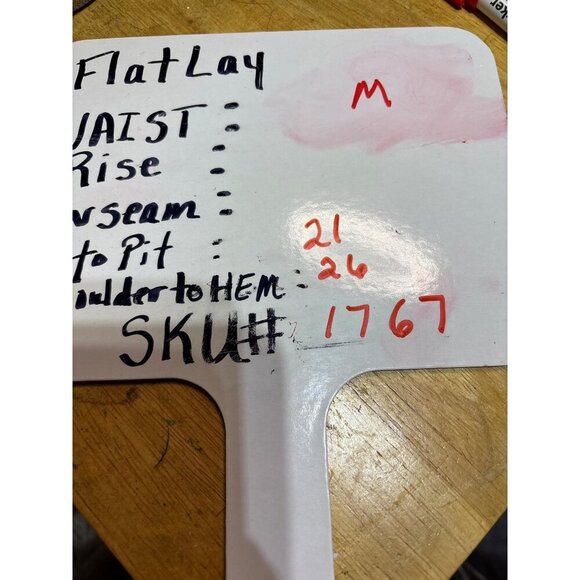 Flat Lay M
WAIST :
Rise :
nseam :
to Pit : 21
oulder to HEM : 26
SKU# 1767